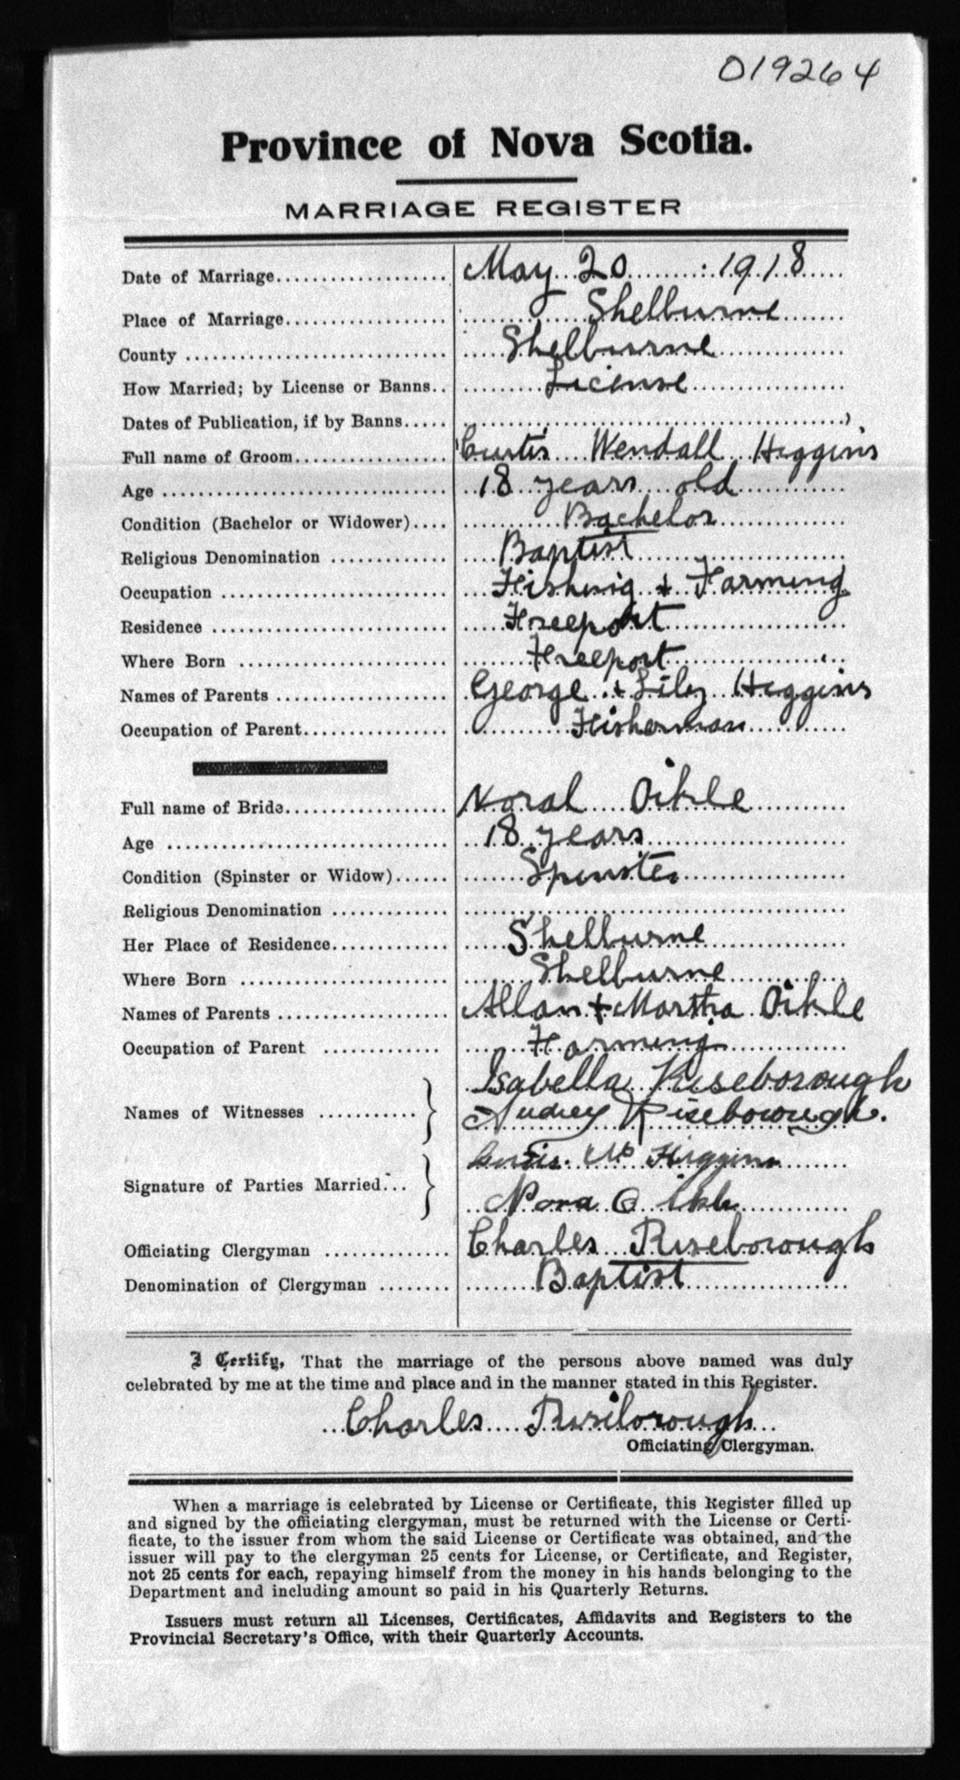 019264
Province of Nova Scotia.
MARRIAGE REGISTER
Date of Marriage.................... May 20 1918
Place of Marriage................... Shelburne
County ............................. Shelburne
How Married; by License or Banns.. License
Dates of Publication, if by Banns.....
Full name of Groom.................. Curtis Wendall Higgins
Age ................................ 18 years old
Condition (Bachelor or Widower).... Bachelor
Religious Denomination ............. Baptist
Occupation ......................... Fishing + Farming
Residence .......................... Freeport
Where Born ......................... Freeport
Names of Parents ................... George + Lily Higgins
Occupation of Parent................ Fisherman
Full name of Bride.................. Norah Oikle
Age ................................ 18 years
Condition (Spinster or Widow)...... Spinster
Religious Denomination .............
Her Place of Residence............. Shelburne
Where Born ......................... Shelburne
Names of Parents ................... Allan + Martha Oikle
Occupation of Parent .............. Farming
Names of Witnesses ........... Isabella Riseborough
Audrey Riseborough.
Signature of Parties Married... Curtis W Higgins
Nora Oikle
Officiating Clergyman .............. Charles Riseborough
Denomination of Clergyman ........ Baptist
I Certify, That the marriage of the persons above named was duly
celebrated by me at the time and place and in the manner stated in this Register.
Charles Riseborough
Officiating Clergyman.
When a marriage is celebrated by License or Certificate, this Register filled up
and signed by the officiating clergyman, must be returned with the License or Certi-
ficate, to the issuer from whom the said License or Certificate was obtained, and the
issuer will pay to the clergyman 25 cents for License, or Certificate, and Register,
not 25 cents for each, repaying himself from the money in his hands belonging to the
Department and including amount so paid in his Quarterly Returns.
Issuers must return all Licenses, Certificates, Affidavits and Registers to the
Provincial Secretary's Office, with their Quarterly Accounts.